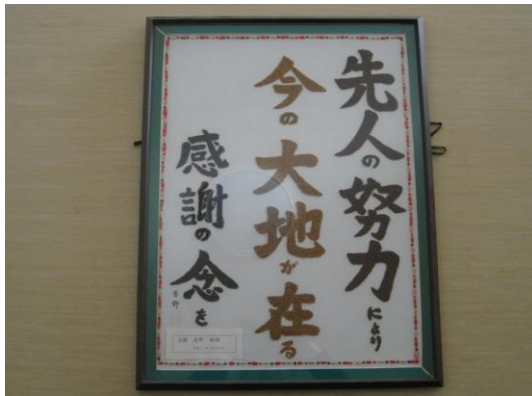 先人の努力により
今の大地が在る
感謝の念を